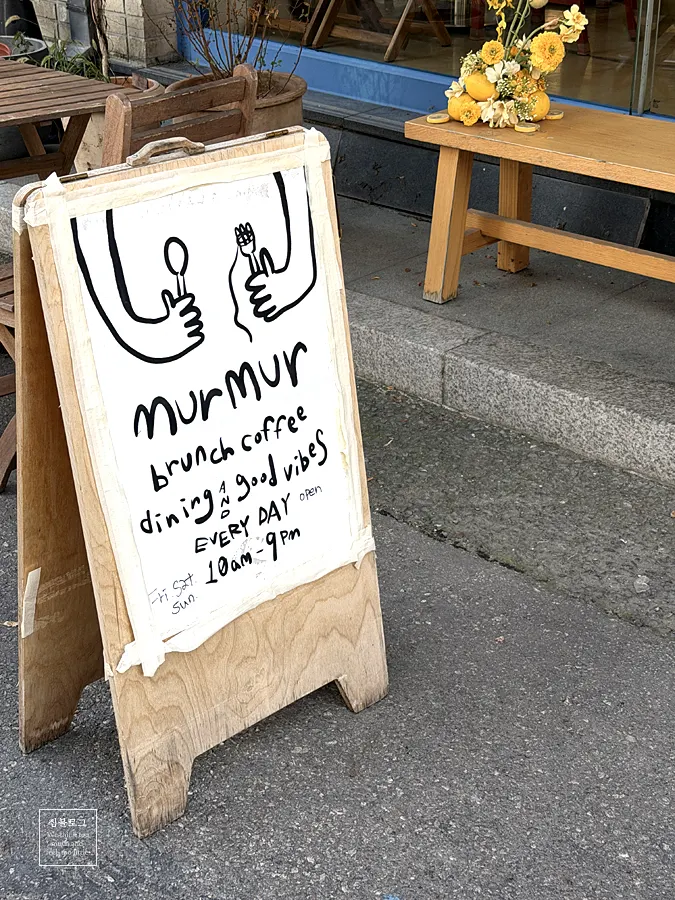 murmur
brunch coffee
dining AND good vibes
EVERY DAY open
10am-9pm
Fri Sat
Sun
심플로그